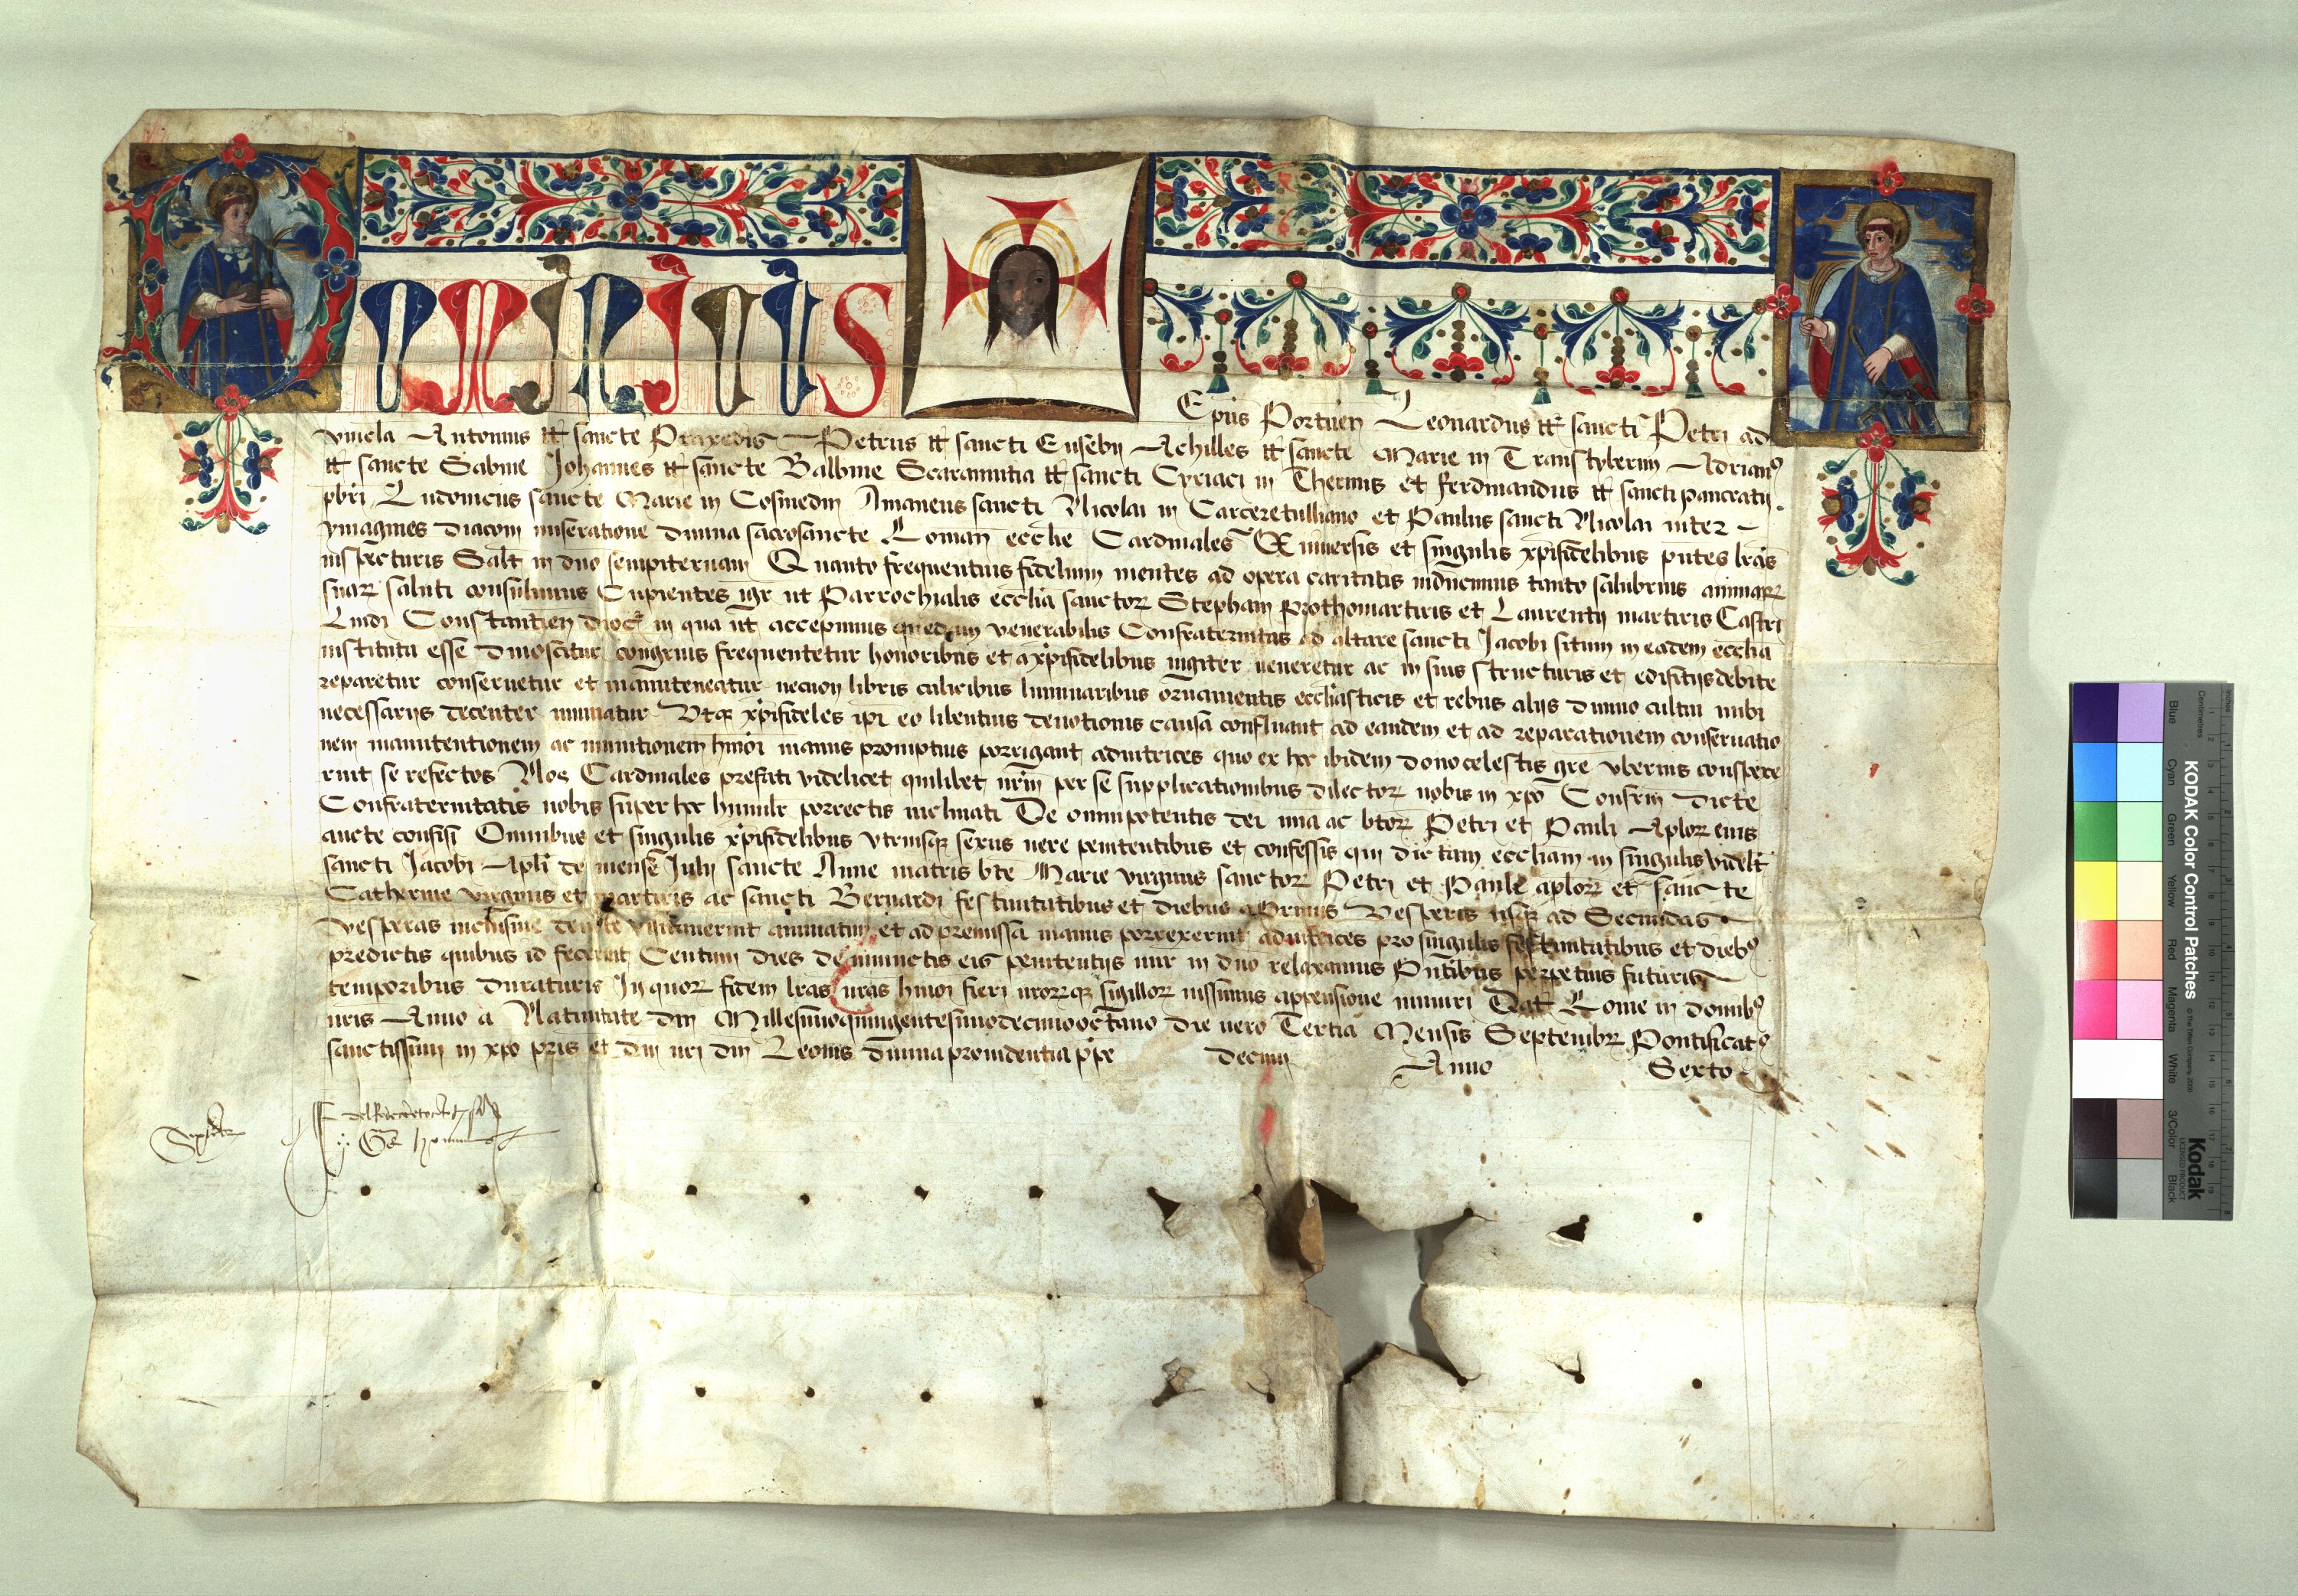 DOMINICUS
Ep̄us Portuen̄ Leonardus tt̄ sancti Petri ad
vincla Antonius tt̄ sancte Praxedis Petrus tt̄ sancti Eusebij Achilles tt̄ sancte Marie in Transtyberim Adrianꝰ
tt̄ sancte Sabine Johannes tt̄ sancte Balbine Scaramutia tt̄ sancti Cyriaci in Thermis et ferdinandus tt̄ sancti pancratij
pb̄ri Ludouicus sancte Marie in Cosmedin Amaneus sancti Nicolai in Carceretulliano et Paulus sancti Nicolai inter
ymagines diaconi miseratione diuina sacrosancte Roman̄ eccl̄ie Cardinales Vniuersis et singulis xp̄ifidelibus p̄ntes lr̄as
inspecturis Salt̄ in dn̄o sempiternam Quanto frequentius fidelium mentes ad opera caritatis inducimus tanto salubrius animarꝝ
suarꝝ saluti consulimus Cupientes igr̄ ut Parrochialis eccl̄ia sanctorꝝ Stephani prothomartiris et Laurentij martiris Castri
Lindi Constantien̄ dioc̄ in qua ut accepimus quedam venerabilis Confraternitas ad altare sancti Jacobi situm in eadem eccl̄ia
instituta esse dinoscitur congruis frequentetur honoribus et a xp̄ifidelibus iugiter veneretur ac in suis structuris et edifitijs debite
reparetur conseruetur et manuteneatur necnon libris calicibus luminaribus ornamentis eccl̄iasticis et rebus alijs diuino cultui inibi
necessarijs decenter muniatur Vtqꝫ xp̄ifideles ip̄i eo libentius deuotionis causa confluant ad eandem et ad reparationem conseruatio
nem manutentionem ac munitionem hmōi manus promptius porrigant adiutrices quo ex hoc ibidem dono celestis gr̄e vberius conspexe
rint se refectos Nos Cardinales prefati videlicet quilibet nr̄m per se supplicationibus dilectorꝝ nobis in xp̄o Confr̄m dicte
Confraternitatis nobis super hoc humilr̄ porrectis inclinati De omnipotentis dei mia ac bt̄orꝝ Petri et Pauli Ap̄lorꝝ eius
aucte confisi Omnibus et singulis xp̄ifidelibus vtriusqꝫ sexus vere penitentibus et confessis qui dictam eccl̄iam in singulis videlt̄
sancti Jacobi Ap̄li de mense Julij sancte Anne matris bt̄e Marie virginis sanctorꝝ Petri et Pauli ap̄lorꝝ et sancte
Catherine virginis et martiris ac sancti Bernardi festiuitatibus et diebus a Primis Vesperis usqꝫ ad Secundas
Vesperas inclusiue deuote visitauerint annuatim et ad premissa manus porrexerint adiutrices pro singulis festiuitatibus et diebꝰ
predictis quibus id fecerint Centum dies de iniunctis eis penitentijs mir̄ in dn̄o relaxamus Pn̄tibus perpetuis futuris
temporibus duraturis In quorꝝ fidem lr̄as nr̄as hmōi fieri nr̄orꝝqꝫ sigillorꝝ iussimus appensione muniri Dat̄ Rome in domibꝰ
nr̄is Anno a Natiuitate dn̄i Millesimoquingentesimodecimooctauo die vero Tertia Mensis Septembrꝭ Pontificatꝰ
sanctissimi in xp̄o pr̄is et dn̄i nr̄i dn̄i Leonis diuina prouidentia pp̄e decimi Anno Sexto
KODAK Color Control Patches
Blue Cyan Green Yellow Red Magenta White 3/Color Black
Kodak
LICENSED PRODUCT
© The Tiffen Company, 2000
Centimetres
Inches